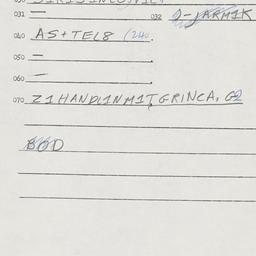 031 — 032 2-JARMIK
040 AS+TEL8 (240.
050 —
060 —
070 Z1HANDL1NM1TGRINCA, G2
BOD